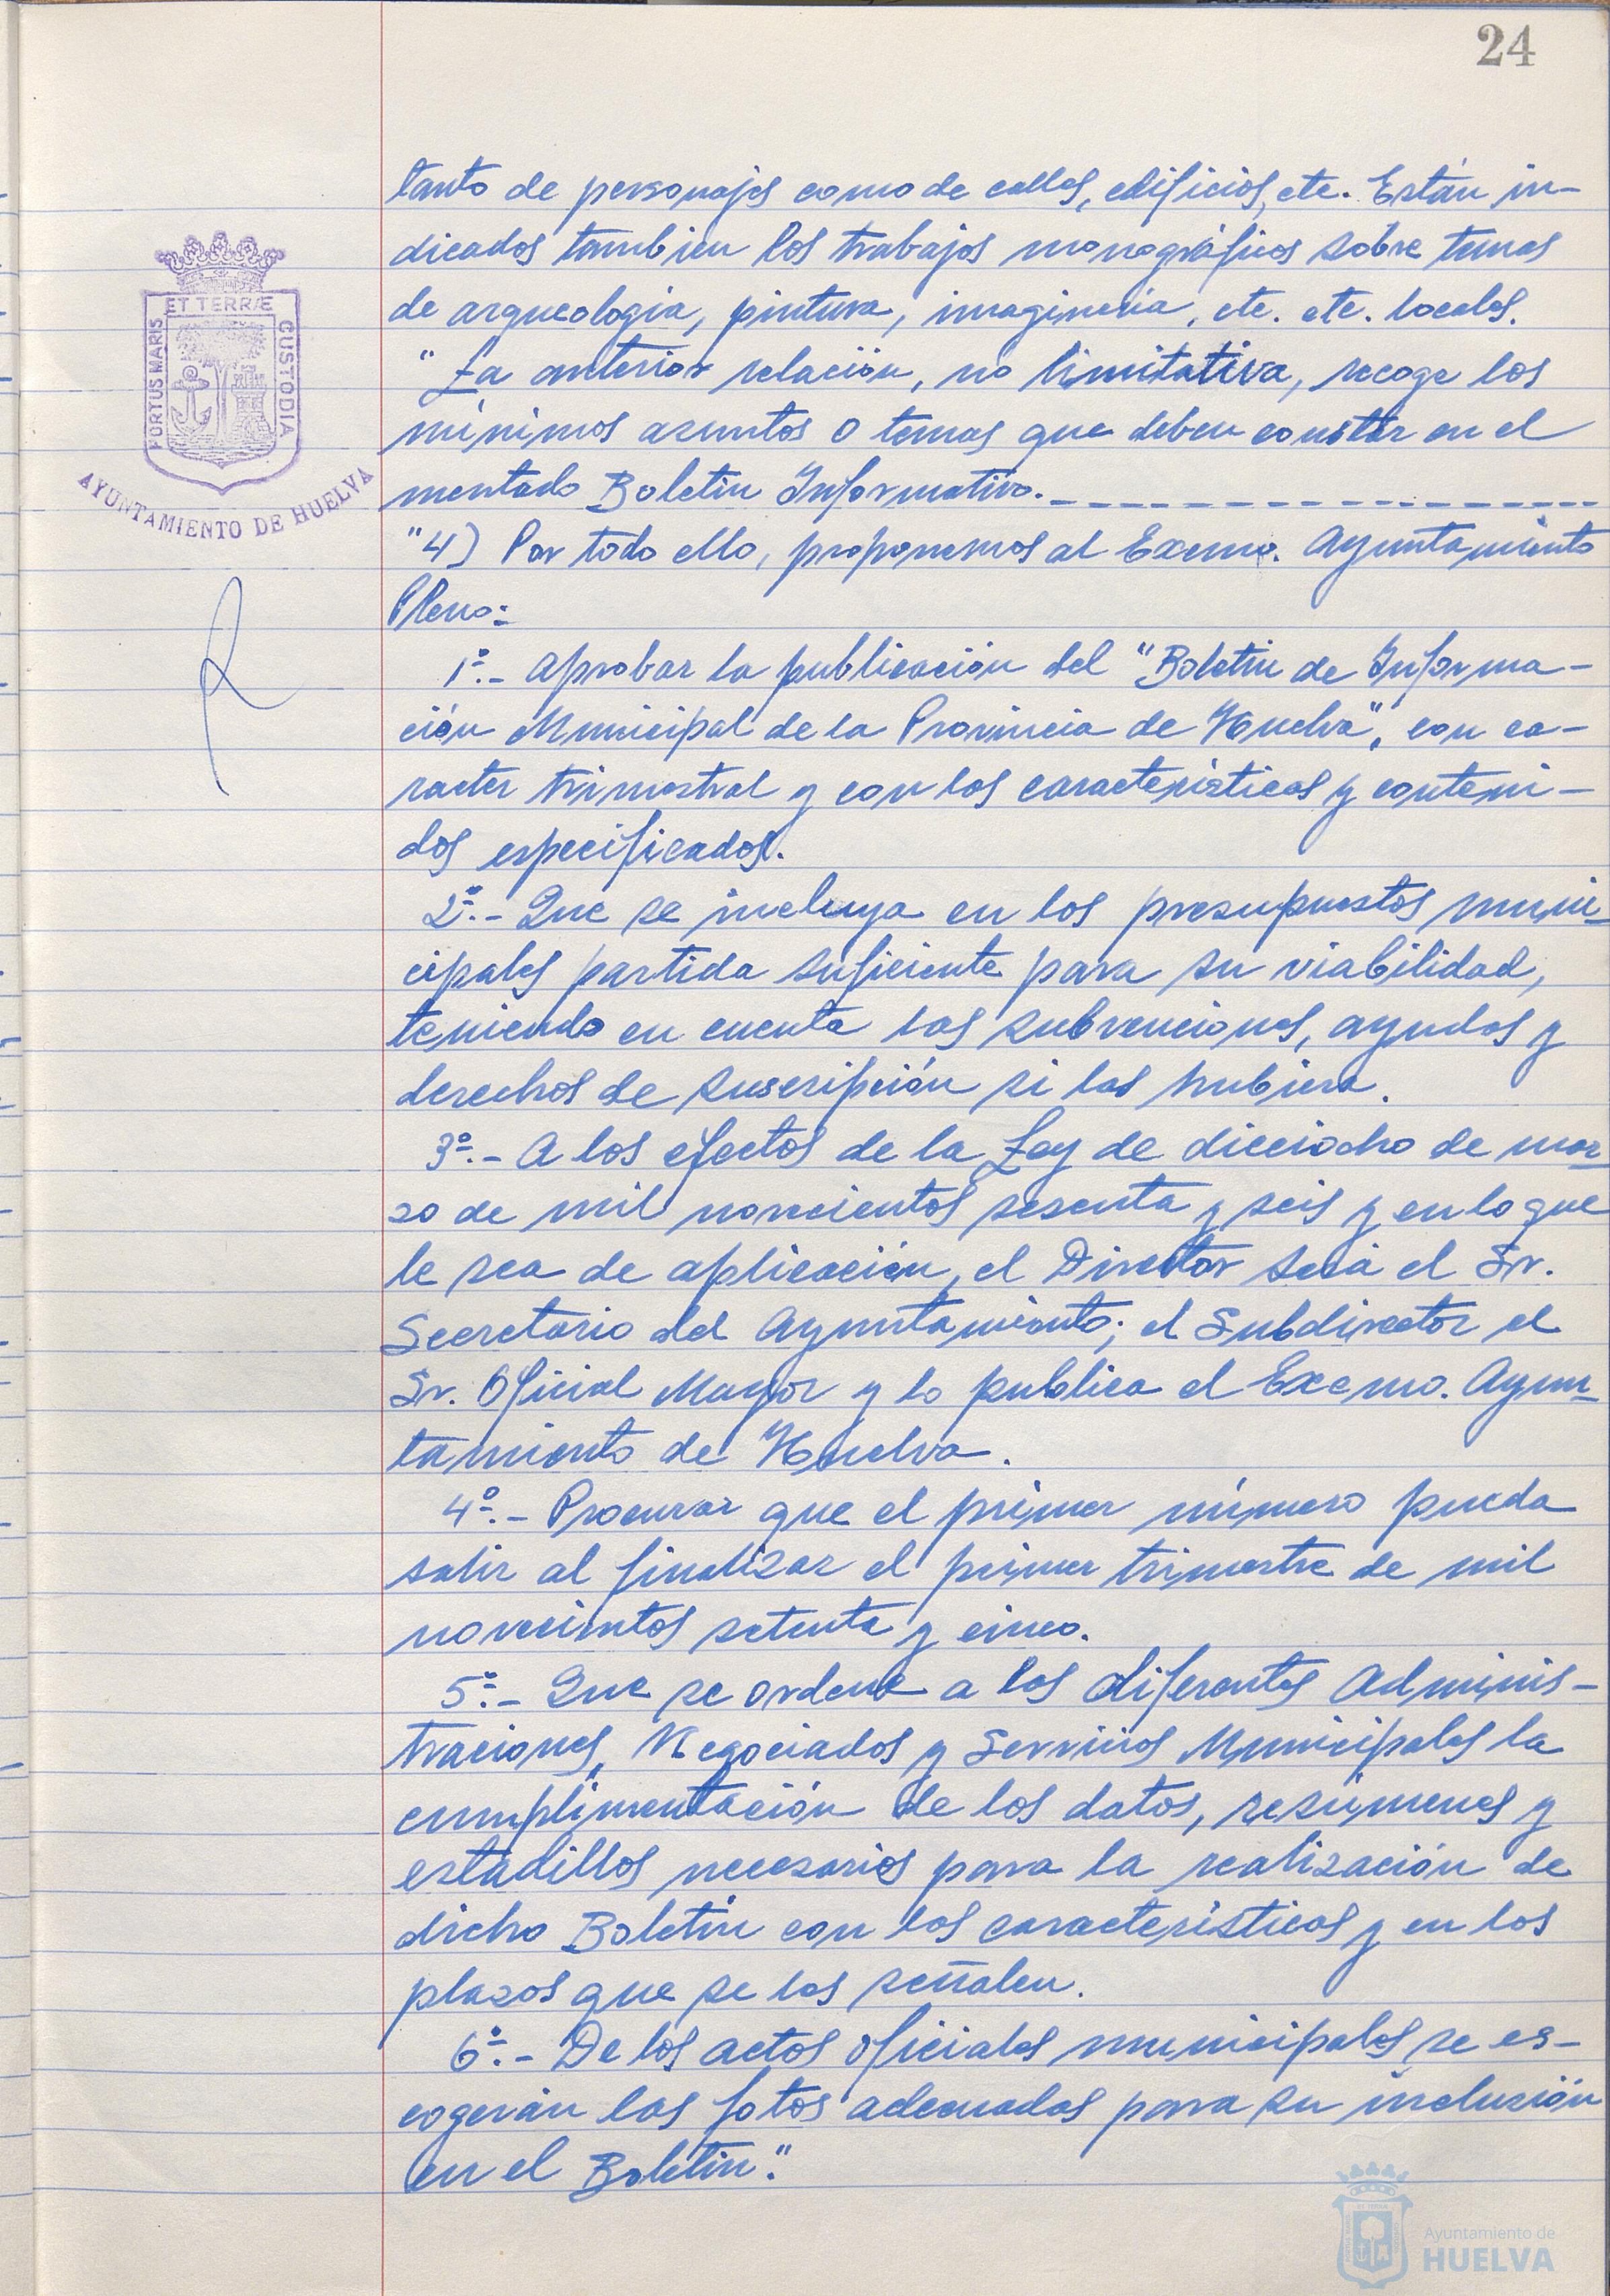 24
ET TERRÆ
PORTUS MARIS
CUSTODIA
AYUNTAMIENTO DE HUELVA
tanto de personajes como de calles, edificios, etc. Están in-
dicados tambien los trabajos monográficos sobre temas
de arqueologia, pintura, imagineria, etc. etc. locales.
"La anterior relación, no limitativa, recoge los
mínimos asuntos o temas que deben constar en el
mentado Boletín Informativo.
"4) Por todo ello, proponemos al Excmo. Ayuntamiento
Pleno:
1º.- Aprobar la publicación del "Boletín de Informa-
ción Municipal de la Provincia de Huelva", con ca-
racter trimestral y con las características y conteni-
dos especificados.
2º.- Que se incluya en los presupuestos muni-
cipales partida suficiente para su viabilidad,
teniendo en cuenta las subvenciones, ayudas y
derechos de suscripción si las hubiera.
3º.- A los efectos de la Ley de dieciocho de mar-
zo de mil novecientos sesenta y seis y en lo que
le sea de aplicación, el Director será el Sr.
Secretario del Ayuntamiento; el Subdirector el
Sr. Oficial Mayor y lo publica el Excmo. Ayun-
tamiento de Huelva.
4º.- Procurar que el primer número pueda
salir al finalizar el primer trimestre de mil
novecientos setenta y cinco.
5º.- Que se ordene a las diferentes Adminis-
traciones, Negociados y Servicios Municipales la
cumplimentación de los datos, resúmenes y
estadillos necesarios para la realización de
dicho Boletín con las características y en los
plazos que se les señalen.
6º.- De los actos oficiales municipales se es-
cogerán las fotos adecuadas para su inclusión
en el Boletín".
Ayuntamiento de
HUELVA